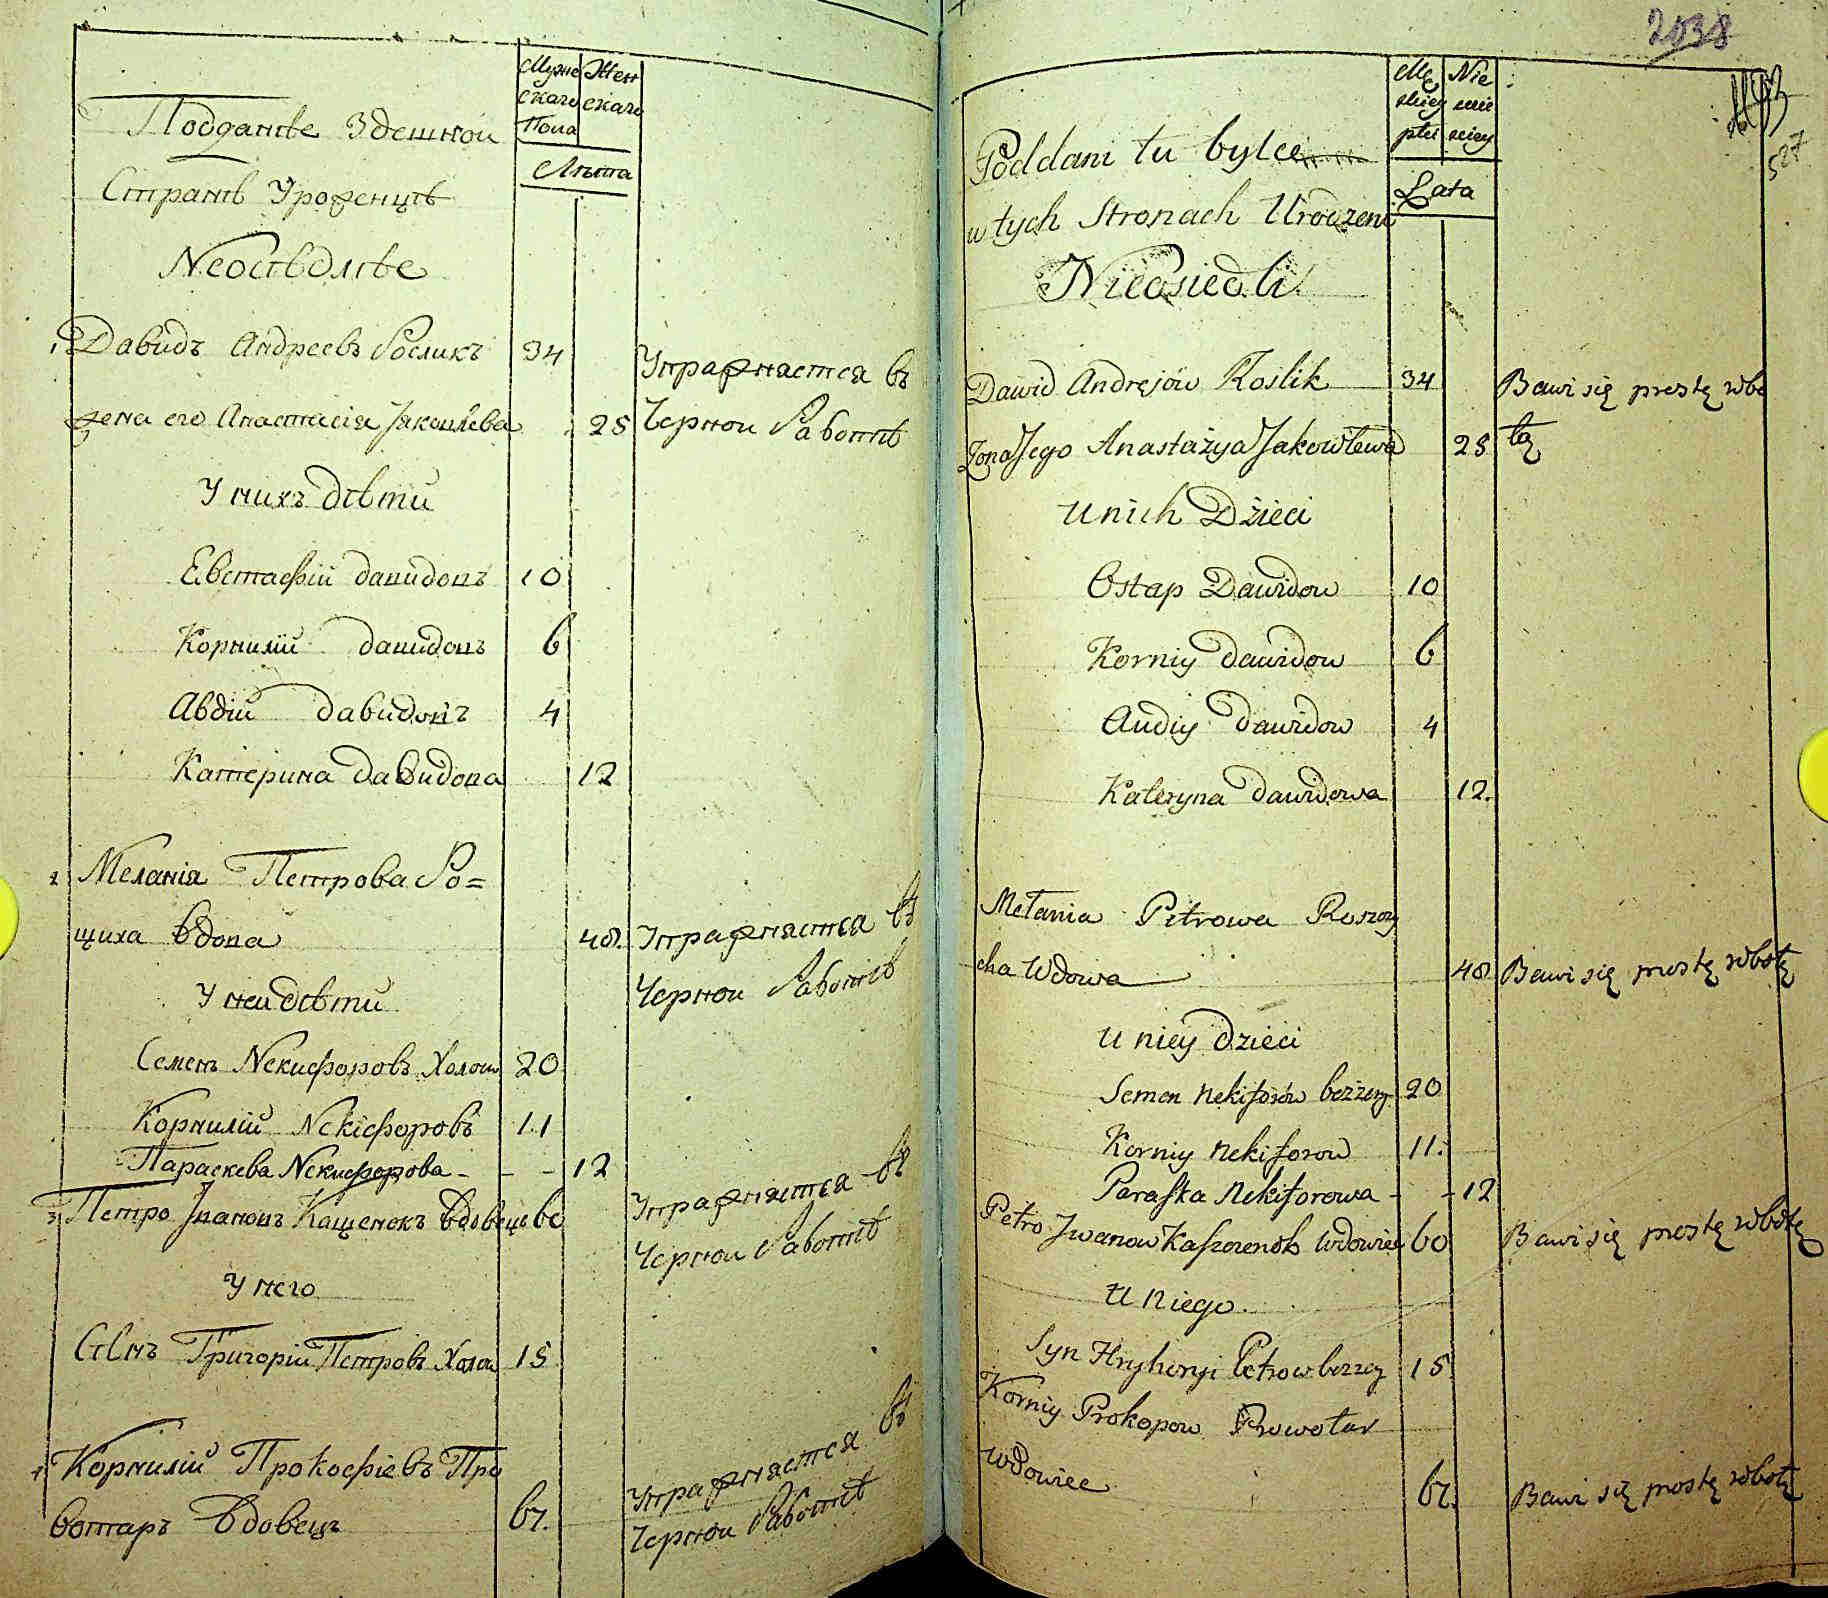 Мужс Жен
скаго скаго
Пола
Лѣта
Подданіе Здешной
Странѣ Уроженцѣ
Неосѣдліе
1 Давидъ Андреевъ Росликъ 34 Упражняется въ
жена его Анастасія Яковлева 25 Черной Работѣ
У нихъ дѣти
Евстафій Давидовъ 10
Корнилій Давидовъ 6
Авдій Давидовъ 4
Катерина Давидова 12
2 Меланія Петрова Ро=
щиха Вдова 48. Упражняется въ
Черной Работѣ
У ней дѣти
Семенъ Некифоровъ Холош 20
Корнилій Некіфоровъ 11
Параскева Некифорова - - - 12
3 Петро Ивановъ Кащенокъ Вдовецъ 60 Упражняется въ
Черной Работѣ
У него
Сынъ Григорій Петровъ Холош 15
4 Корнилій Прокофіевъ Про
вотаръ Вдовецъ 67. Упражняется въ
Черной Работѣ
2038
527
Mę Nie
skiey wie
płci sciey
Lata
Poddani tu bylce
w tych Stronach Urodzeni
Nieosiedli
Dawid Andrejów Roslik 34 Bawi się prostę robo
Zona Jego Anastazya Jakowlewa 25 tą
U nich Dzieci
Ostap Dawidow 10
Korniy Dawidow 6
Audiy Dawidow 4
Kateryna Dawidowa 12.
Melania Petrowa Roszczy
cha Wdowa 48 Bawi się prostę robotę
U niey Dzieci
Semen Nekiforów bezżen 20
Korniy Nekiforow 11.
Paraska Nekiforowa - - 12
Petro Jwanow Kaszczenok Wdowiec 60 Bawi się prostę robotę
U niego.
Syn Hryhoryi Petrow bezzen 15
Korniy Prokopow Prowotar
Wdowiec 67. Bawi się prostę robotę